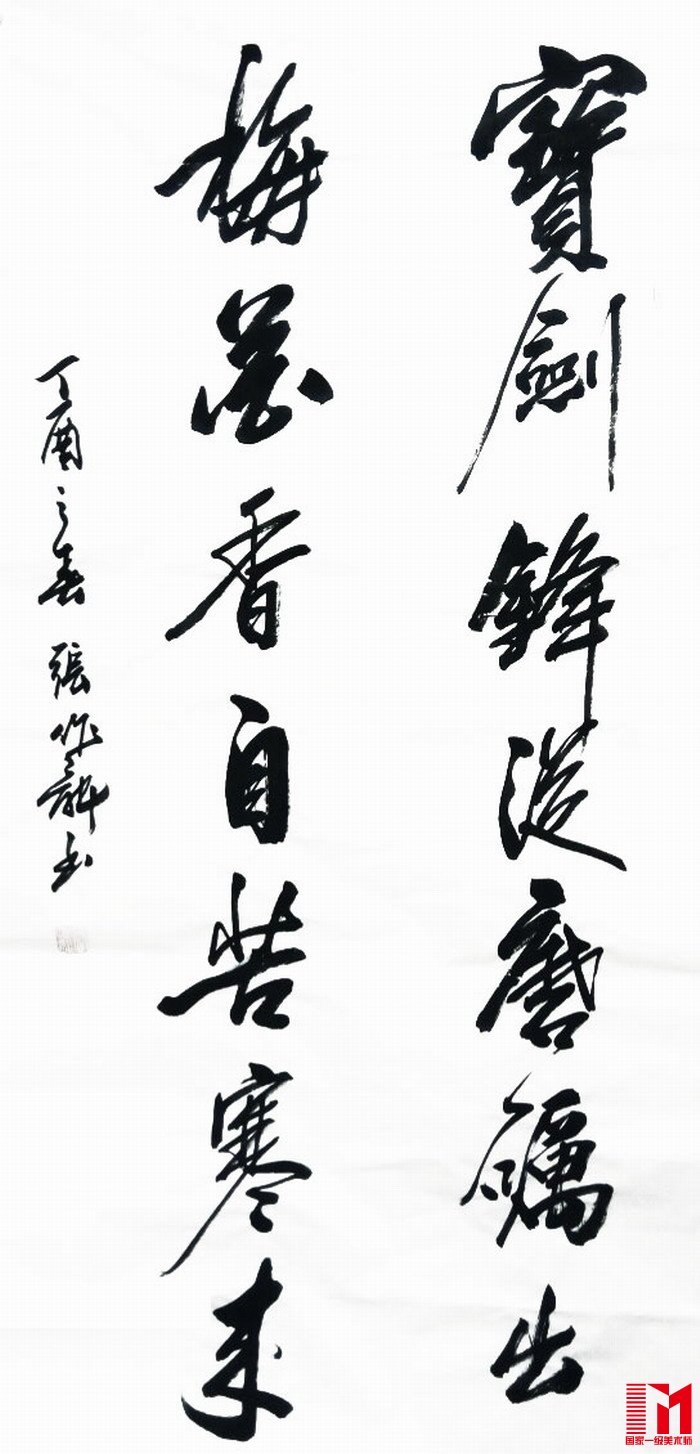 寶劍鋒從磨礪出
梅花香自苦寒來
丁酉之春 張作龍書
国家一级美术师